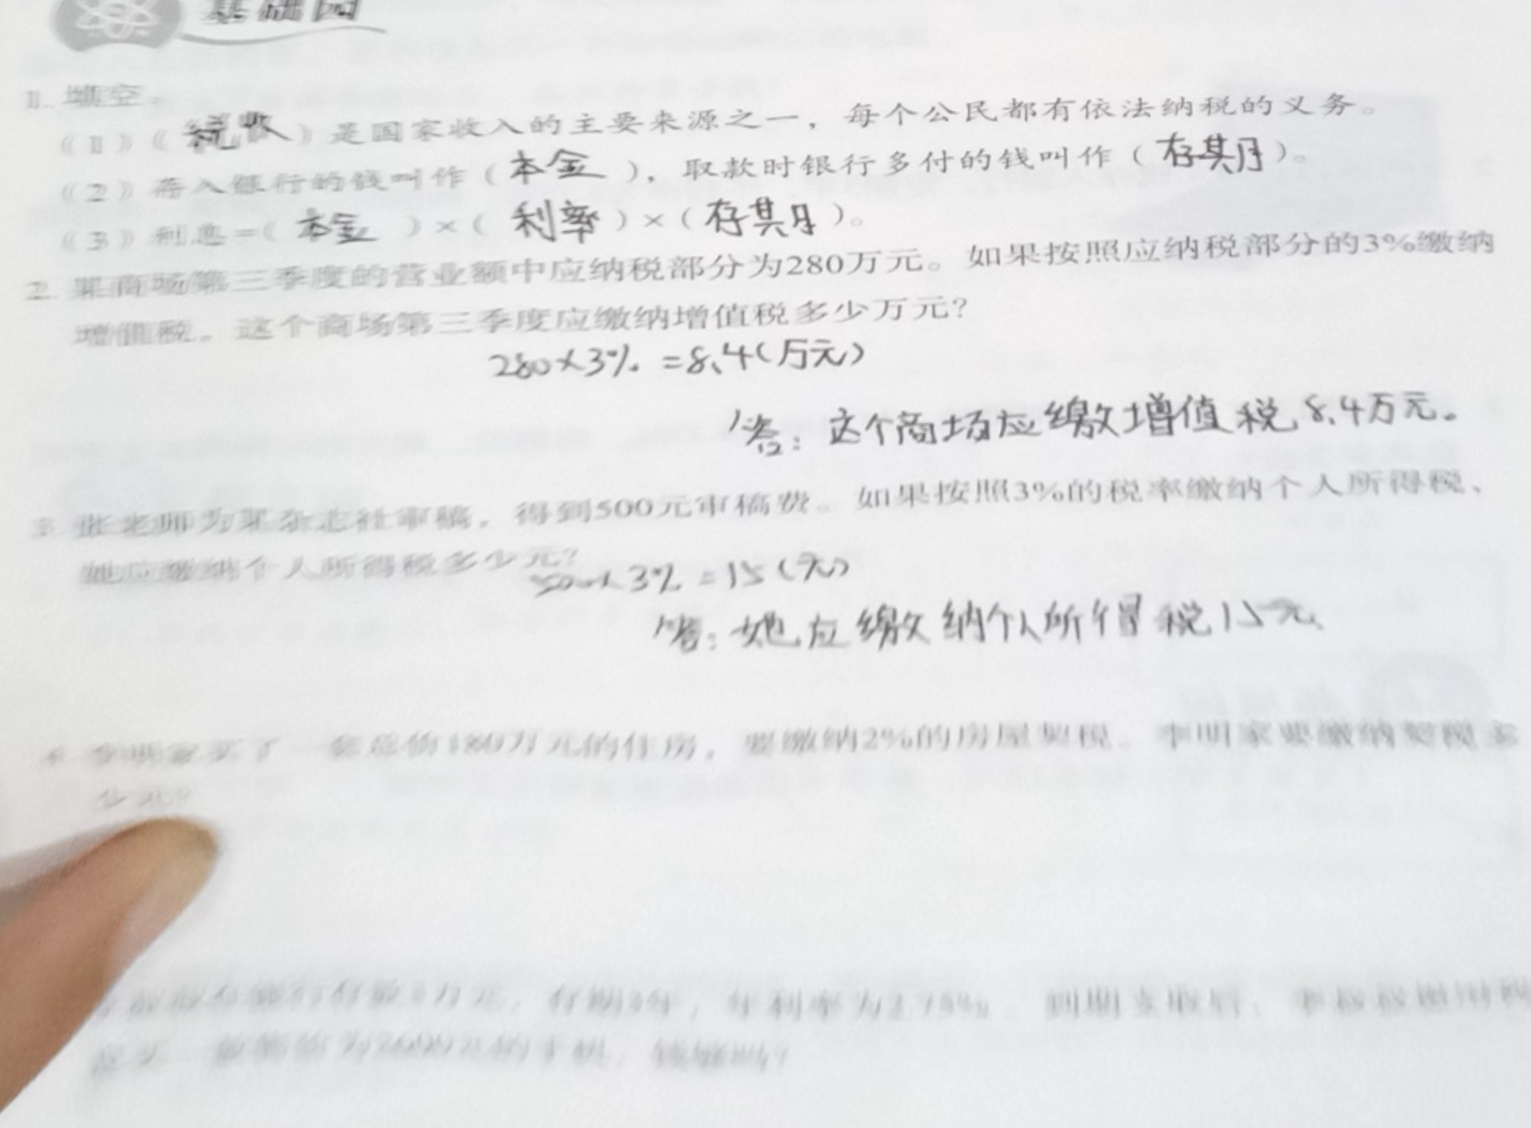 基础园
1. 填空。
(1)(税收)是国家收入的主要来源之一，每个公民都有依法纳税的义务。
(2)存入银行的钱叫作(本金)，取款时银行多付的钱叫作(存其月)。
(3)利息=(本金)×(利率)×(存其月)。
2. 某商场第三季度的营业额中应纳税部分为280万元。如果按照应纳税部分的3%缴纳
增值税。这个商场第三季度应缴纳增值税多少万元?
280×3%=8.4(万元)
答：这个商场应缴增值税8.4万元。
3. 张老师为某杂志社审稿，得到500元审稿费。如果按照3%的税率缴纳个人所得税、
她应缴纳个人所得税多少元?
500×3%=15(元)
答：她应缴纳个人所得税15元
4. 李明家买了一套总价180万元的住房，要缴纳2%的房屋契税。李明家要缴纳契税多
少元?
存期3年，年利率为2.75%。到期支取后，
手机，钱够吗?